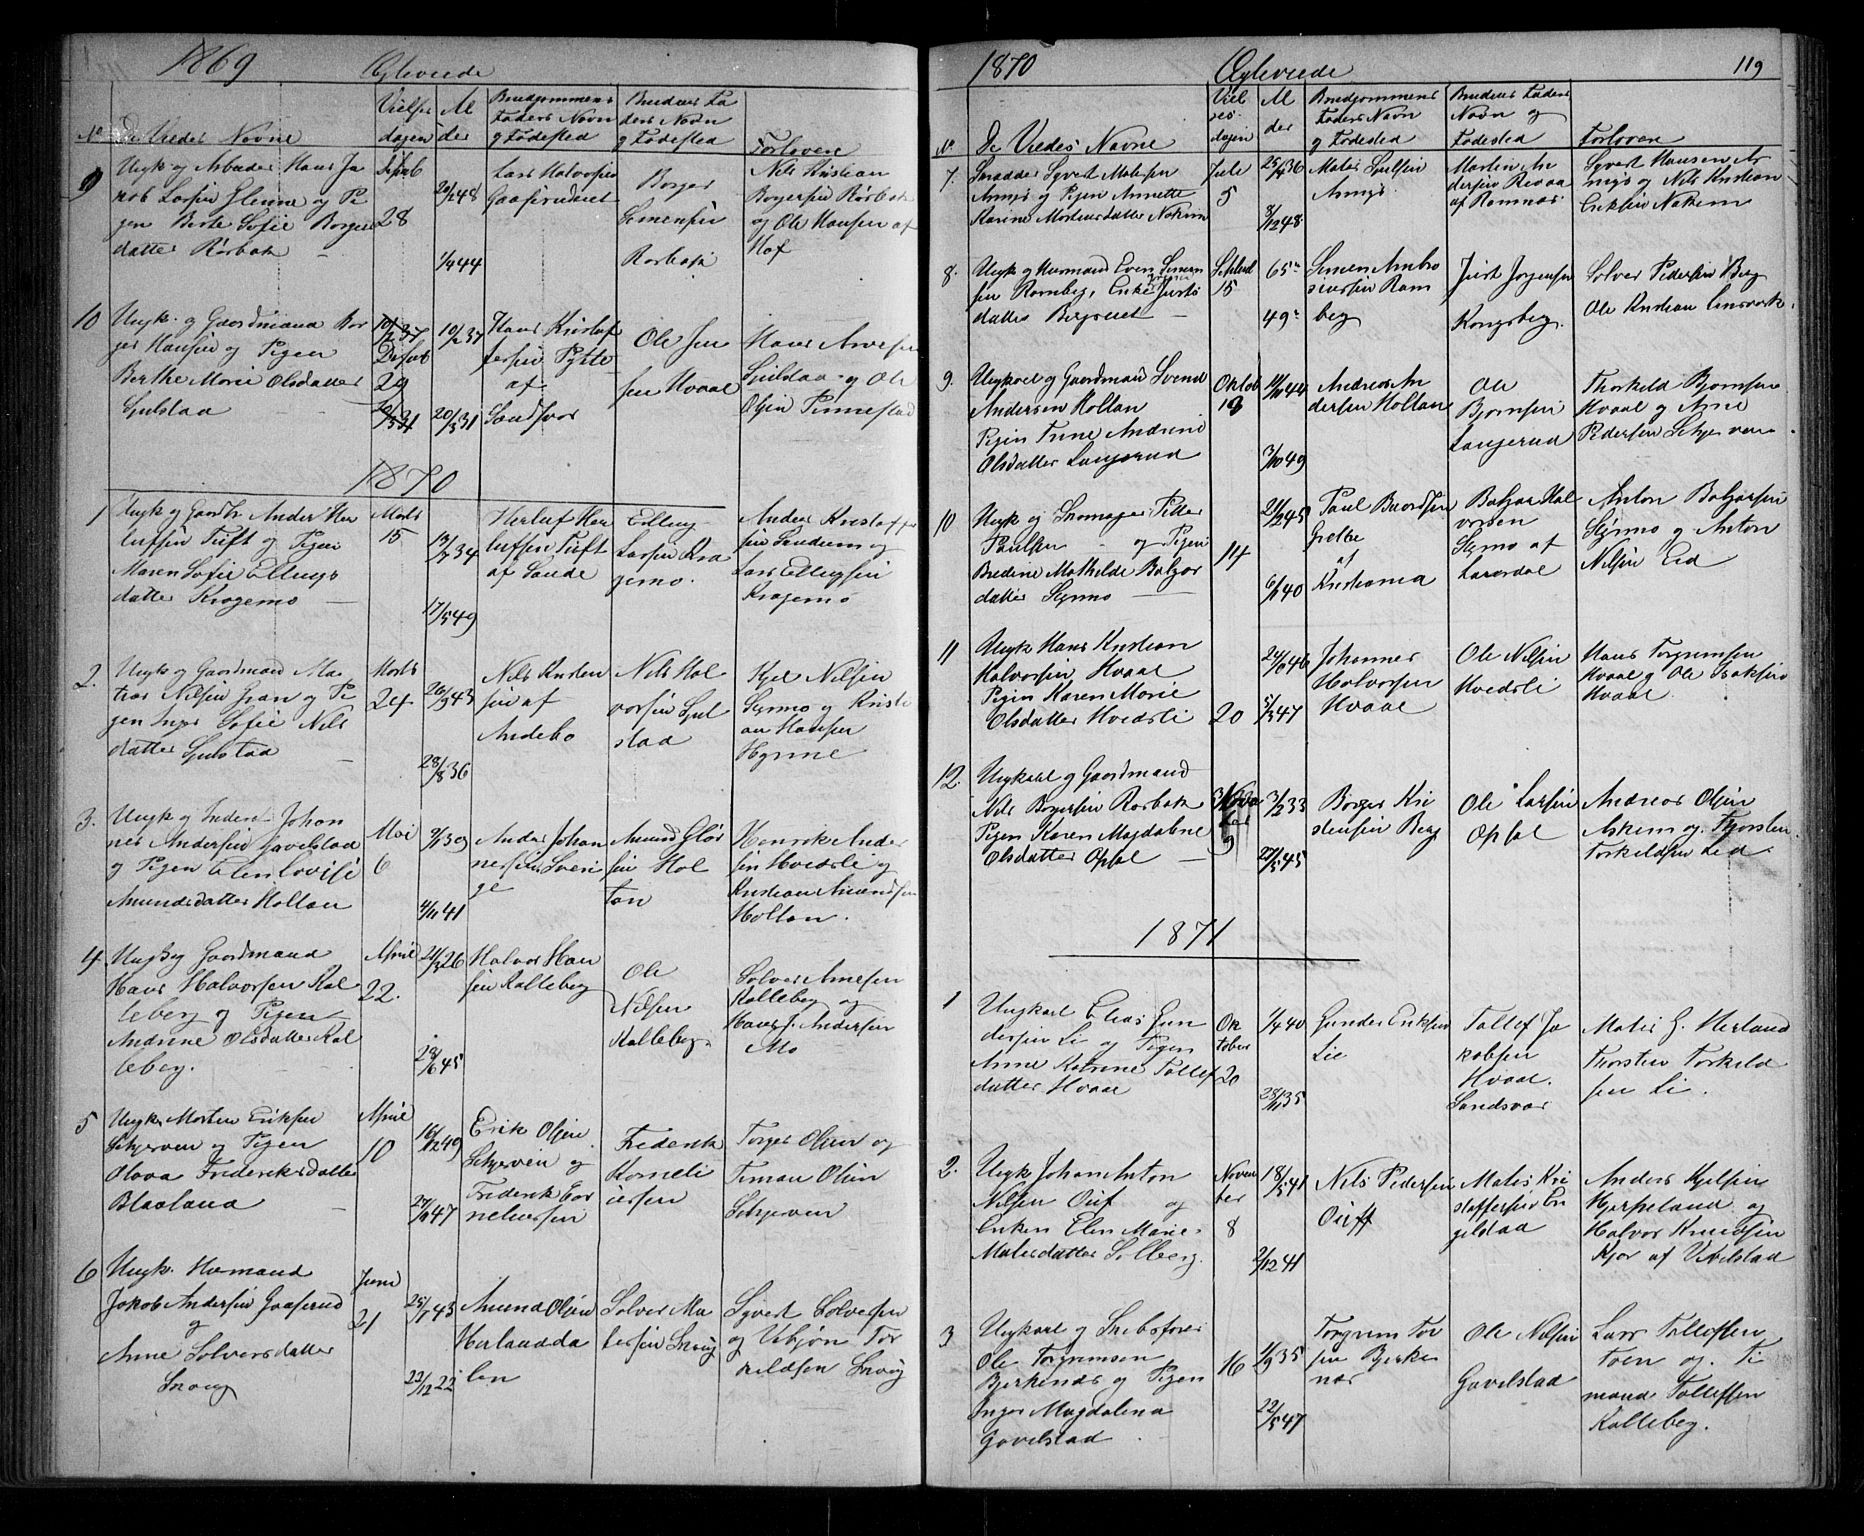 1869
Ægteviede
No
De Viedes Navne
Vielses
dagen
Al
der
Brudgommens
Faders Navn
og Fødested
Brudens Fa
ders Navn
og Fødested
Forlovere
9
Ungk og Arbeider Hans Ja
kob Larsen Glenne og Pi
gen Berte Sofie Borgers
datter Rørbak
28
4/4 44
Lars Halvorsen
Gaaserudeiet
Borger
Simensen
Rorbak
Nils Kristian
Borgersen Rørbak
og Ole Hansen af
Hof
10
Ungk. og Gaardmand Bor
ger Hansen og Pigen
Berthe Marie Olsdatter
Gjulstaa
29
10/2 37
20/3 31
Hans Kristof
fersen Pytte
af
Sandsvær
Ole Jen
sen Hvaal
Hans Arvesen
Gjulstaa og Ole
Olsen Tinnestad
1870
1
Ungk og Gaardb. Anders Her
lufsen Tuft og Pigen
Maren Sofie Ellings
datter Kragemo
Marts
15
13/7 34
17/5 49
Herluf Her
lufsen Tuft
af Sande
Elling
Larsen Kra
gemo.
Anders Kristoffer
sen Sundem og
Lars Ellingsen
Kragemo
2.
Ungk og Gaardmand Ma
thias Nilsen Gran og Pi
gen Inger Sofie Nils
datter Gjulstaa
Marts
24
26/9 43
28/8 36
Nils Kristen
sen af
Andebo
Nils Hal
vorsen Gjul
staa
Kjel Nilsen
Stgrmo og Kristi
an Hansen
Hynne
3.
Ungk og Inders Johan
nes Andersen Gavelstad
og Pigen Elen Lovise
Amundsdatter Hollan
Mai
6
9/1 39
4/11 41
Anders Johan
nessen Sveri
ge
Amund Glør
sen Hol
tan
Henrik Ander
sen Hvedsli og
Kristian Amundsen
Holtan.
4.
Ungk og Gaardmand
Hans Halvorsen Kal
leberg og Pigen
Andrine Olsdatter Kal
leberg.
April
22.
21/3 26
28/6 45
Halvor Han
sen Kalleberg
Ole
Nilsen
Kalleberg.
Solver Arnesen
Kalleberg og
Hans J. Andersen
Mo
5
Ungk. Morten Eriksen
Skjerven og Pigen
Olava Frederiksdatter
Blaaland
April
10
16/12 49
27/10 47
Erik Olsen
Skjerven og
Frederik Cor
neliussen
Frederik
Korneli
ussen
Torger Olsen og
Timan Olsen
Skjerven
6
Ungk. Husmand
Jakob Andersen Gaaserud
og
Anne Solversdatter
Snoug
Juni
21
25/7 43
22/12 22
Amund Olsen
Herlandda
len
Solver Ma
tesen Snoug
Syvert Solvesen
og Vebjøn Tor
kildsen Snoug
1870
Ægteviede
119
No
De Viedes Navne
Viel
ses
dagen
Al
der
Brudgommens
Faders Navn
og Fødested
Brudens Faders
Navn og
Fødested
Forlovere
7.
Skrædder Syvert Matesen
Amigo og Pigen Annette
Karine Mortensdatter Nakim
Juli
5
25/4 36
8/12 48
Mates Gulsen
Morten An
dersen Revaa
af Ramnæs
Syvert Hansen
og Nils Kristian
Eriksen Nakem
8.
Ungk og Husmand Even Simen
sen Ramberg, Enke Jurts
datter Bergseiet
Septbr
15
65
49
Simen Ambro
siussen Ram
berg
Jurt Jorgensen
Kongsberg.
Solver Pedersen Berg
Ole Kristian Linsvark.
9.
Ungkarl og Gaardmand Svend
Andersen Hollan
Pigen Trine Andrine
Olsdatter Langerud
Oktob
13
14/10 44
3/10 49
Andreas An
dersen Hollan
Ole
Bjørnsen
Langerud
Thorkild Bjørnsen
Hvaal og Arne
Pedersen Skjerven
10
Ungk og Snomager Petter
Paulsen og Pigen
Bredine Mathilde Balzer
datter Stgrmo
14
21/2 45
6/1 40
Paul Baardsen
Grette
af
Kristiania
Balzar Hal
vorsen
Stgrmo af
Laurdal
Anton Balzersen
Stgrmo og Anton
Nilsen Eid
11
Ungk Hans Kristian
Halvorsen Hvaal
Pigen Karen Marie
Olsdatter Hvedsli
20
24/10 46
5/3 47
Johannes
Halvorsen
Hvaal
Ole Nilsen
Hvedsli
Hans Torgrimsen
Hvaal og Ole Isaksen
Hvaal
12.
Ungkarl og Gaardmand
Nils Borgersen Rorbak
Pigen Karen Magdalene
Olsdatter Opsal
9
3/2 33
27/5 45
Borger Kri
stensen Berg
Ole Larsen
Opsal
Andreas Olsen
Askem og Thorsten
Torkildsen Lid
1871
1
Ungkarl Elias Gun
dersen Li og Pigen
Anne Katrine Tollef
datter Hvaal
Ok
tober
20
1/4 40
28/11 35
Gunder Eriksen
Lie
Tollef Ja
kobsen
Hvaal.
Sandsvær
Mates G. Herland
Thorsten Torkild
sen Li.
2.
Ungk Johan Anton
Nilsen Ouf og
Enken Elen Marie
Matesdatter Solberg.
Novem
ber
8
18/5 41
2/12 41
Nils Pedersen
Ouff
Mates Kri
stoffersen En
geldaa
Anders Kjelsen
Hjerpeland og
Halvor Knudsen
Kjor af Vivelstad
3
Ungkarl og Skibsfører
Ole Torgrimsen
Bjerknæs og Pigen
Inger Magdalena
Gavelstad
16
1/9 35
22/5 47
Torgrim Tor
sen Bjerke
næs
Ole Nilsen
Gavelstad
Lars Tollefsen
Toen og Ti
mand Tollefsen
Kalleberg.